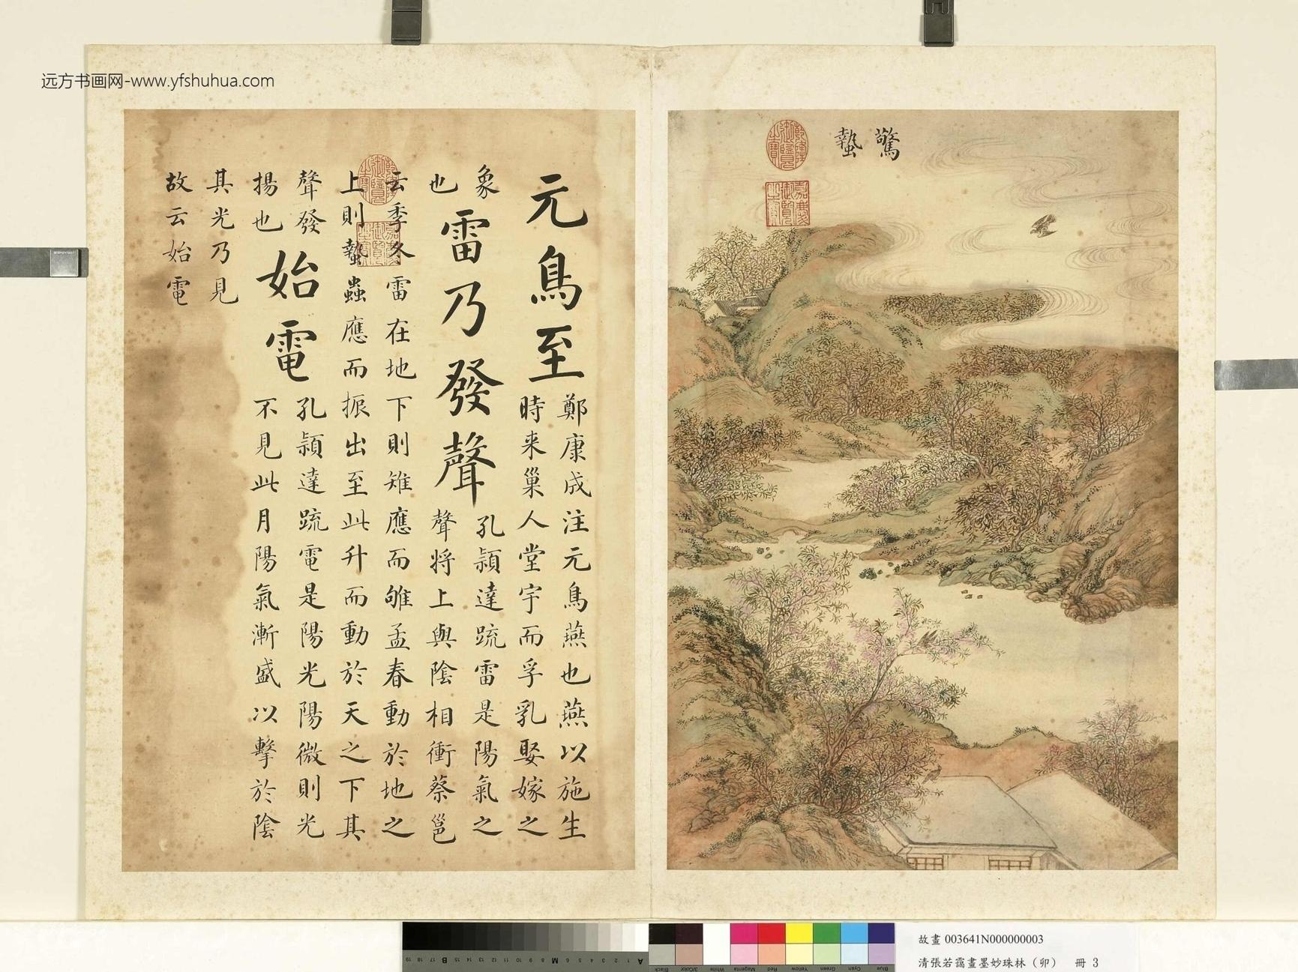 远方书画网-www.yfshuhua.com
驚
蟄
元鳥至
鄭康成注元鳥燕也燕以施生
時来巢人堂宇而孚乳娶嫁之
象
也
雷乃發聲
孔頴達疏雷是陽氣之
聲將上與陰相衝蔡邕
云季冬雷在地下則雉應而雊孟春動於地之
上則蟄蟲應而振出至此升而動於天之下其
聲發
揚也
始電
孔頴達疏電是陽光陽微則光
不見此月陽氣漸盛以擊於陰
其光乃見
故云始電
故畫 003641N000000003
清張若靄畫墨妙珠林（卯） 冊 3